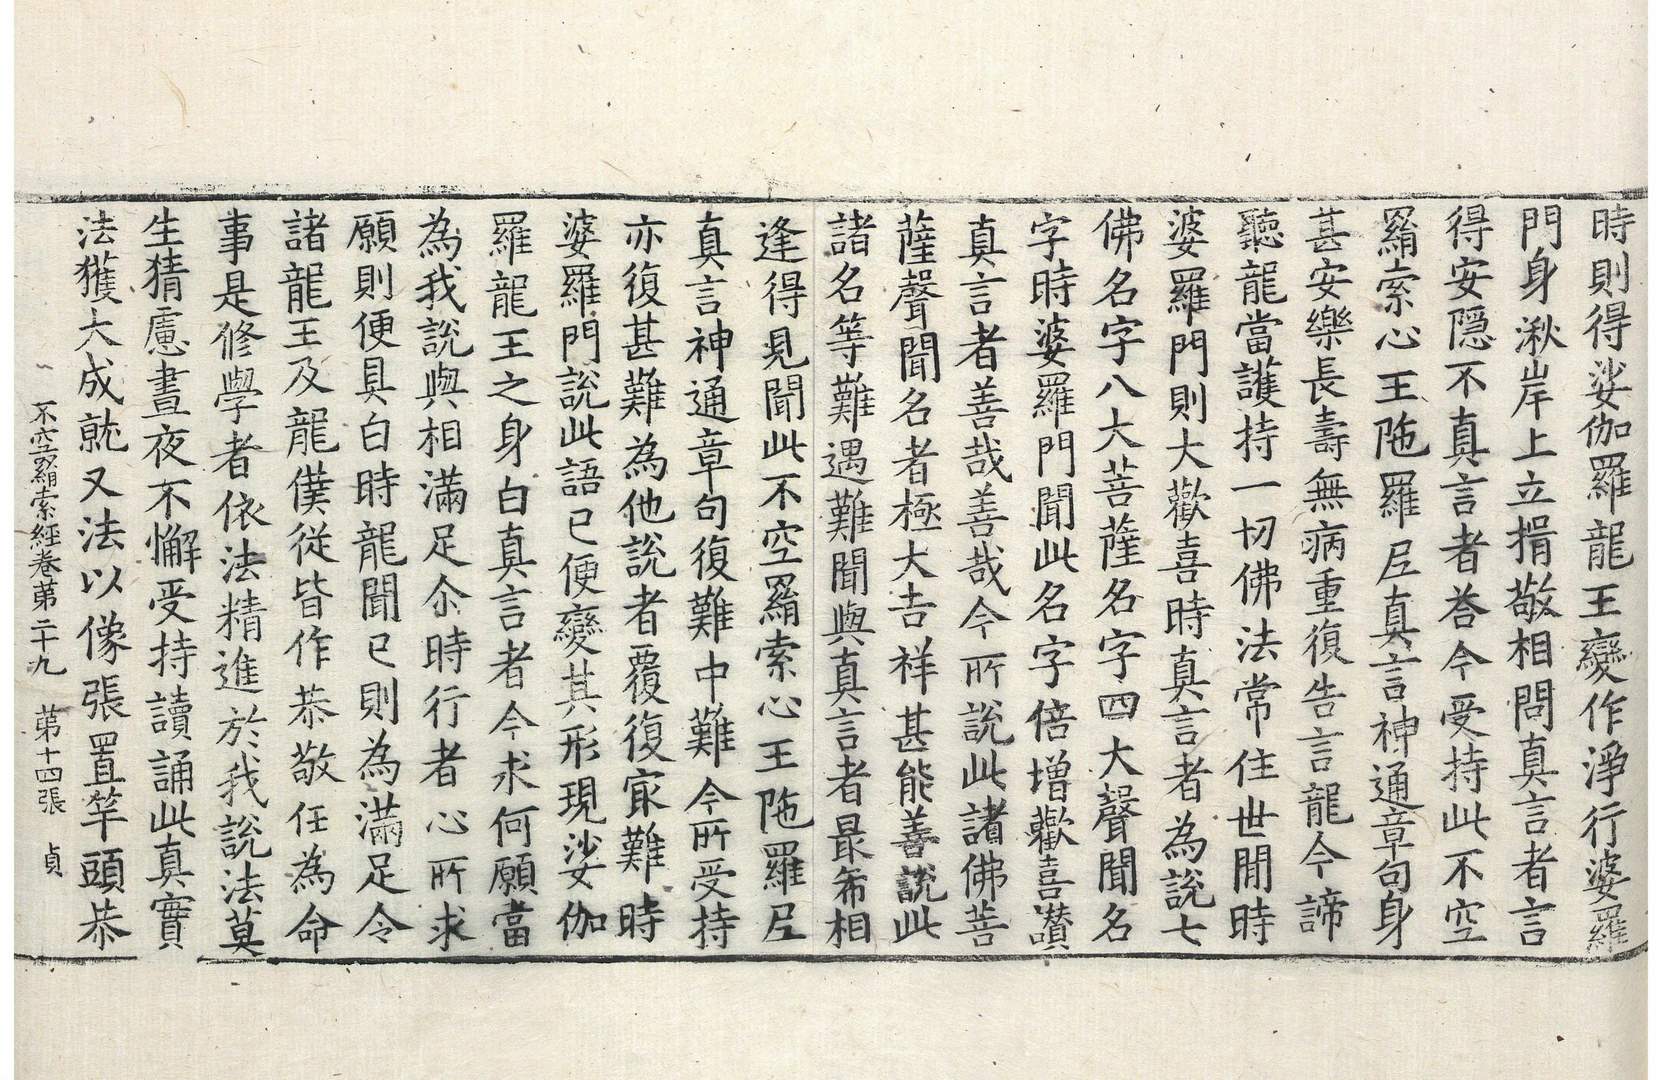 時則得娑伽羅龍王變作淨行婆羅
門身湫岸上立揖敬相問真言者言
得安隱不真言者荅今受持此不空
羂索心王陁羅尼真言神通章句身
甚安樂長壽無病重復告言龍今諦
聽龍當護持一切佛法常住世間時
婆羅門則大歡喜時真言者為說七
佛名字八大菩薩名字四大聲聞名
字時婆羅門聞此名字倍增歡喜讃
真言者善哉善哉今所說此諸佛菩
薩聲聞名者極大吉祥甚能善說此
諸名等難遇難聞與真言者最希相
逢得見聞此不空羂索心王陁羅尼
真言神通章句復難中難今所受持
亦復甚難為他說者覆復㝡難時
婆羅門說此語已便變其形現娑伽
羅龍王之身白真言者今求何願當
為我說與相滿足尒時行者心所求
願則便具白時龍聞已則為滿足令
諸龍王及龍僕從皆作恭敬任為命
事是修學者依法精進於我說法莫
生猜慮晝夜不懈受持讀誦此真實
法獲大成就又法以像張置竿頭恭
不空羂索經卷第二十九 第十四張 貞